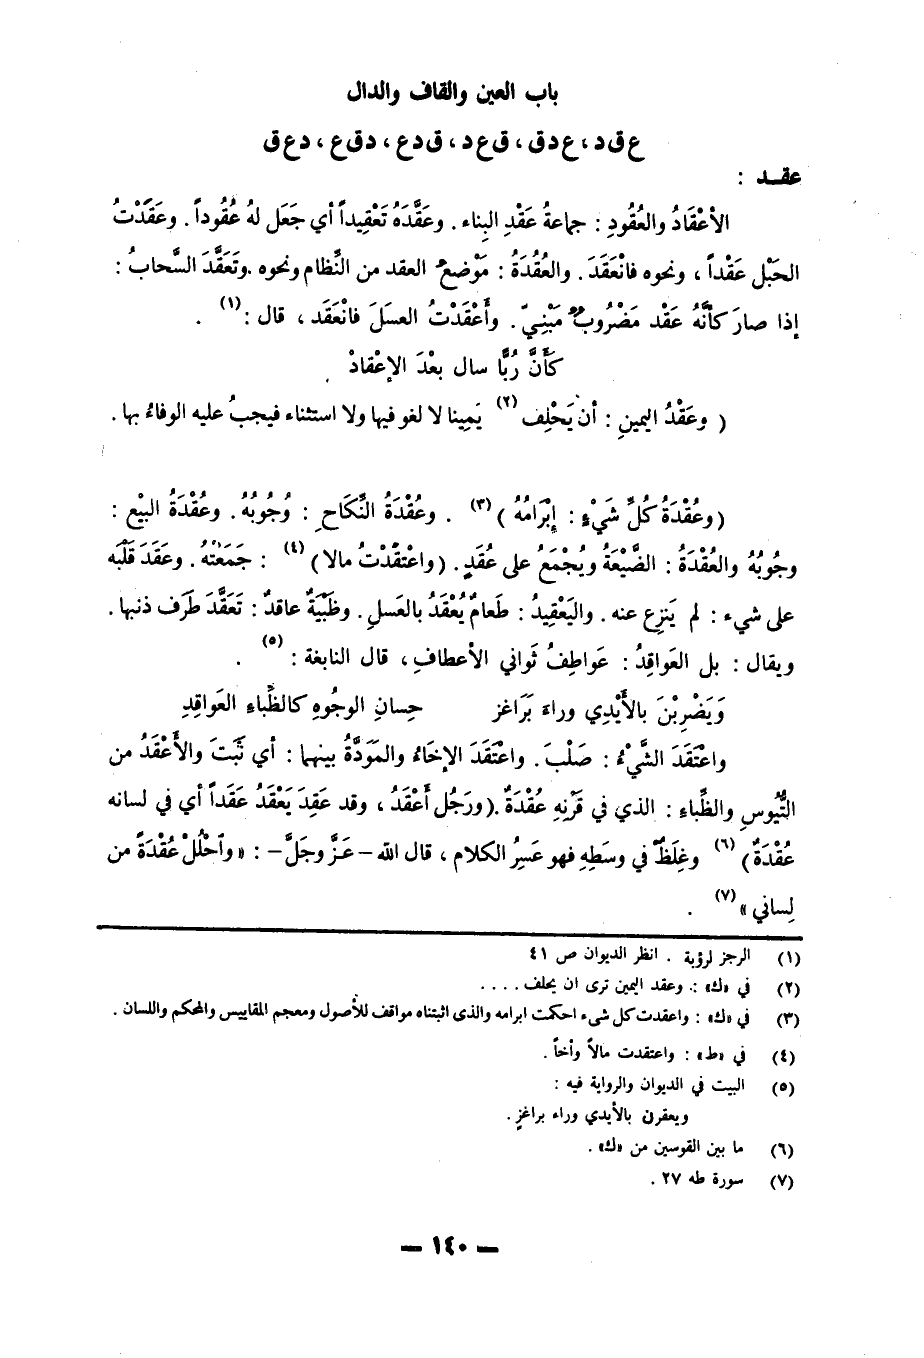 باب العين والقاف والدال
ع ق د ، ع د ق ، ق ع د ، ق د ع ، د ق ع ، د ع ق
عقـد :
الأعْقَادُ والعُقُودِ : جماعةُ عَقْدِ البِناء . وعَقَّدَهُ تَعْقِيداً أي جَعَل لهُ عُقُوداً . وعَقَدْتُ
الحَبْل عَقْداً ، ونحوه فانْعَقَدَ . والعُقْدَةُ : مَوْضعُ العقد من النِّظام ونحوه .وتَعَقَّدَ السَّحابُ :
إذا صارَ كأنَّهُ عَقْد مَضْرُوبٌ مَبْنِيّ . وأَعْقَدْتُ العسلَ فانْعَقَد ، قال :(١) .
كَأَنَّ رُبًّا سال بعْدَ الإعْقادْ
( وعَقْدُ اليمينِ : أن يَحْلِف (٢) يَمِينا لا لغو فيها ولا استثناء فيجبُ عليه الوفاءُ بها .
(وعُقْدَة كُلِّ شَيْءٍ : إبْرَامُهُ )(٣) . وعُقْدَةُ النِّكَاحِ : وُجُوبُهُ . وعُقْدَةُ البيْع :
وجُوبُهُ والعُقْدَةُ : الضَّيْعَةُ ويُجْمَعُ على عُقَدٍ . (واعْتَقَدْتُ مالا) (٤) : جَمَعْتُهُ . وعَقَدَ قَلْبَه
على شيء : لم يَنزِع عنه . واليَعْقِيدُ : طَعامٌ يُعْقَدُ بالعَسلِ . وظَبْيَةٌ عاقدٌ : تَعَقَّدَ طَرَف ذنبها .
ويقال : بل العَواقِدُ : عَواطِفُ ثَواني الأعطافِ ، قال النابغة : (٥) .
وَيَضْرِبْنَ بالأَيْدِي وراءَ بَرَاغز حِسانِ الوجُوهِ كالظِّباءِ العَواقِدِ
واعتَقَدَ الشَّيْءُ : صَلْبَ . واعتَقَدَ الإخَاءُ والمَوَدَّةُ بينهما : أي ثَبَتَ والأعْقَدُ من
التُّيُوسِ والظِّباءِ : الذي في قَرْنِهِ عُقْدَةٌ .(ورَجُل أعْقَدُ ، وقد عَقِدَ يَعْقَدُ عَقَداً أي في لسانه
عُقْدَةٌ) (٦) وغِلَظٌ في وسَطِهِ فهو عَسِرُ الكلام ، قال الله – عَزَّ وجَلَّ– : «وآحْلُلْ عُقْدَةً من
لِساني »(٧) .
(١) الرجز لرؤبة . انظر الديوان ص ٤١
(٢) في «ك» : وعقد اليمين ترى ان يحلف . . . .
(٣) في «ك» : واعقدت كل شيء احكمت ابرامه والذى اثبتناه مواقف للأصول ومعجم المقاييس والمحكم واللسان .
(٤) في «ط» : واعتقدت مالاً وأخاً .
(٥) البيت في الديوان والرواية فيه :
ويعقرن بالأيدي وراء براغزٍ .
(٦) ما بين القوسين من «ك» .
(٧) سورة طه ٢٧ .
– ١٤٠ –